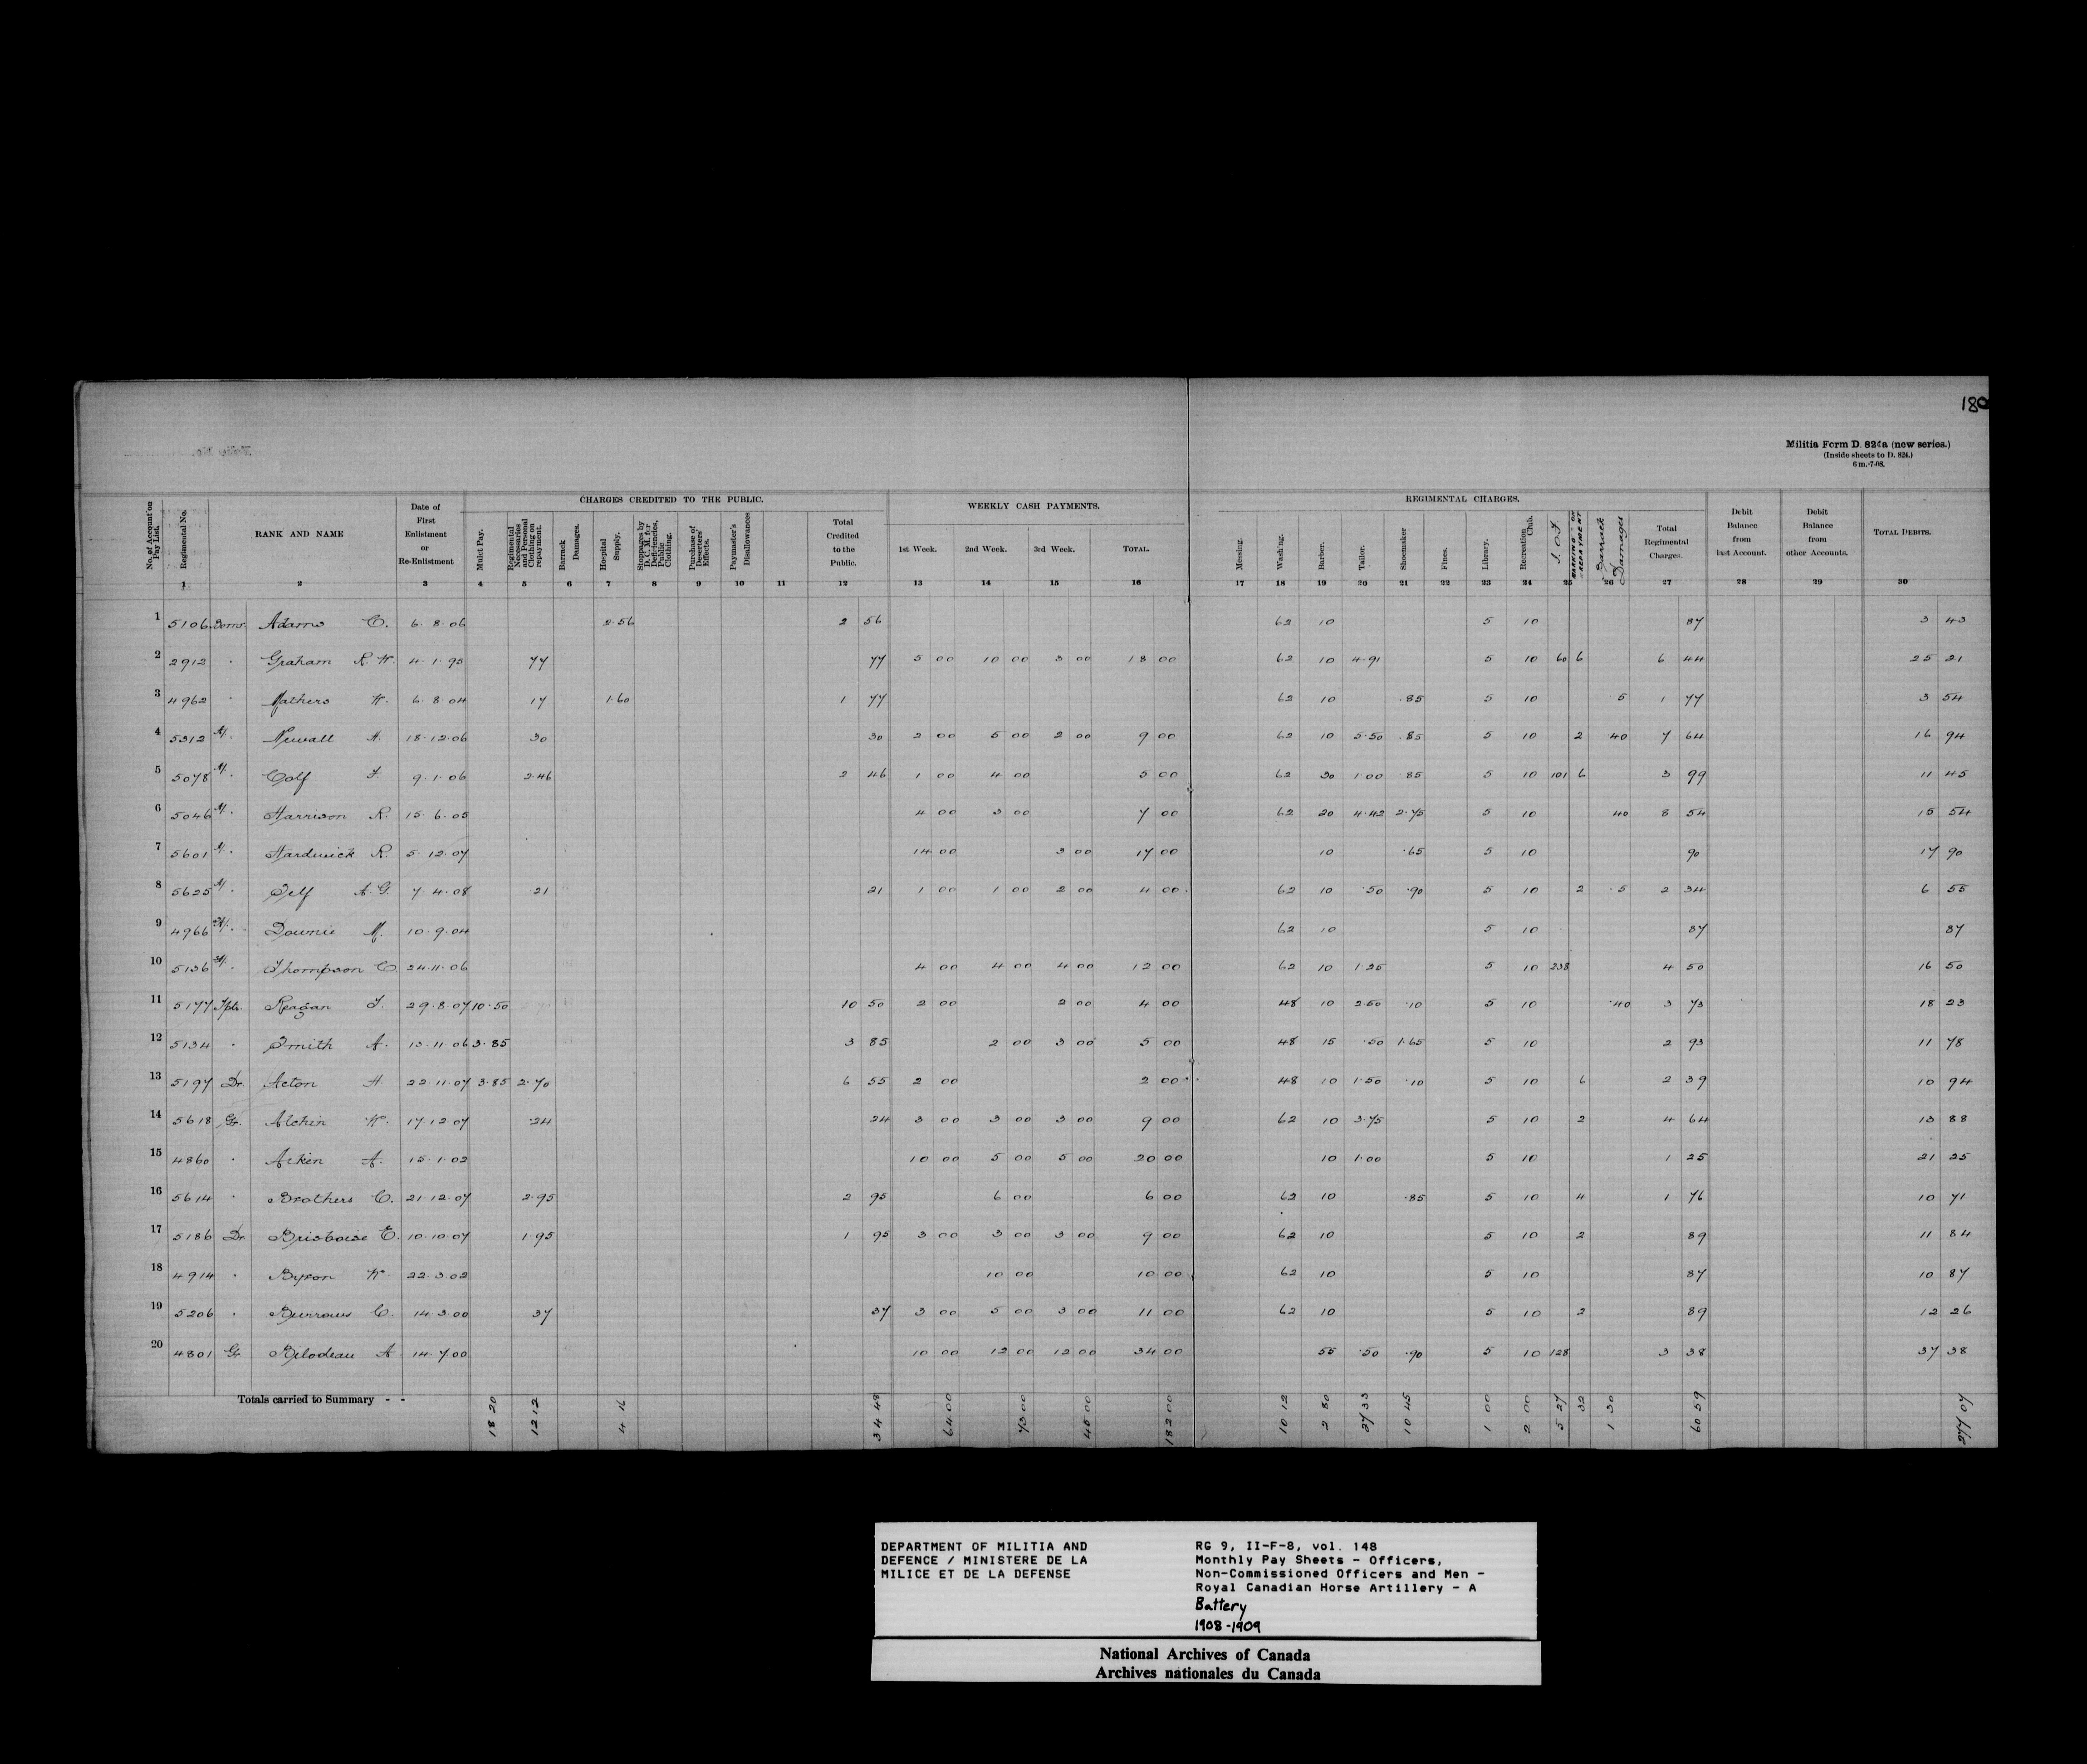 180
Militia Form D. 824a (new series.)
(Inside sheets to D. 824.)
6 m.-7-08.
CHARGES CREDITED TO THE PUBLIC. WEEKLY CASH PAYMENTS. REGIMENTAL CHARGES.
No. of Account on Pay List. Regimental No. RANK AND NAME Date of First Enlistment or Re-Enlistment Mulct Pay. Regimental Necessaries and Personal Clothing on repayment. Barrack Damages. Hospital Supply. Stoppages by D. C. M. for Deficiencies, Public Clothing. Purchase of Deserters' Effects. Paymaster's Disallowances Total Credited to the Public. 1st Week. 2nd Week. 3rd Week. TOTAL. Messing. Wash'ng. Barber. Tailor. Shoemaker Fines. Library. Recreation Club. I.O.F. MARKING ON REPAYMENT Barrack Damages Total Regimental Charges. Debit Balance from last Account. Debit Balance from other Accounts. TOTAL DEBITS.
1 2 3 4 5 6 7 8 9 10 11 12 13 14 15 16 17 18 19 20 21 22 23 24 25 26 27 28 29 30
1 5106 Adams C. 6.8.06 2.56 2 56 62 10 5 10 87 3 43
2 2912 " Graham R.W. 4.1.95 77 77 5 00 10 00 3 00 18 00 62 10 4.91 5 10 60 6 6 44 25 21
3 4962 " Mathers W. 6.8.04 17 1.60 1 77 62 10 .85 5 10 5 1 77 3 54
4 5312 Newall A. 18.12.06 30 30 2 00 5 00 2 00 9 00 62 10 5.50 .85 5 10 2 40 7 64 16 94
5 5078 Colf F. 9.1.06 2.46 2 46 1 00 4 00 5 00 62 30 1.00 .85 5 10 101 6 3 99 11 45
6 5046 Harrison R. 15.6.05 4 00 3 00 7 00 62 20 4.42 2.75 5 10 40 8 54 15 54
7 5601 Hardwick R. 5.12.07 14 00 3 00 17 00 10 .65 5 10 90 17 90
8 5625 Self A.G. 7.4.08 21 21 1 00 1 00 2 00 4 00 62 10 .50 .90 5 10 2 .5 2 34 6 55
9 4966 Downie M. 10.9.04 62 10 5 10 87 87
10 5136 Thompson C. 24.11.06 4 00 4 00 4 00 12 00 62 10 1.25 5 10 238 4 50 16 50
11 5177 Tptr. Reagan J. 29.8.07 10.50 10 50 2 00 2 00 4 00 48 10 2.50 .10 5 10 .40 3 73 18 23
12 5134 " Smith A. 13.11.06 3.85 3 85 2 00 3 00 5 00 48 15 .50 1.65 5 10 2 93 11 78
13 5197 Dr. Acton H. 22.11.07 3.85 2.70 6 55 2 00 2 00 48 10 1.50 .10 5 10 6 2 39 10 94
14 5618 Gr. Alchin W. 17.12.07 .24 24 3 00 3 00 3 00 9 00 62 10 3.75 5 10 2 4 64 13 88
15 4860 " Aiken A. 15.1.02 10 00 5 00 5 00 20 00 10 1.00 5 10 1 25 21 25
16 5614 " Brothers C. 21.12.07 2.95 2 95 6 00 6 00 62 10 .85 5 10 4 1 76 10 71
17 5186 Dr. Brisboise E. 10.10.07 1.95 1 95 3 00 3 00 3 00 9 00 62 10 5 10 2 89 11 84
18 4914 " Byron W. 22.3.02 10 00 10 00 62 10 5 10 87 10 87
19 5206 " Burrows C. 14.3.00 37 37 3 00 5 00 3 00 11 00 62 10 5 10 2 89 12 26
20 4801 Gr Bilodeau A 14.7.00 10 00 12 00 12 00 34 00 55 .50 .90 5 10 128 3 38 37 38
Totals carried to Summary - - 18 20 12 12 4 16 34 48 64 00 73 00 45 00 182 00 10 12 2 80 27 33 10 45 1 00 2 00 5 27 32 1 30 60 59 277 07
DEPARTMENT OF MILITIA AND
DEFENCE / MINISTERE DE LA
MILICE ET DE LA DEFENSE
RG 9, II-F-8, vol. 148
Monthly Pay Sheets - Officers,
Non-Commissioned Officers and Men -
Royal Canadian Horse Artillery - A
Battery
1908-1909
National Archives of Canada
Archives nationales du Canada